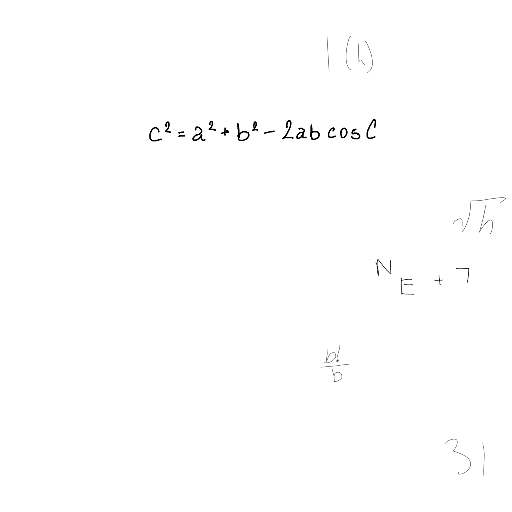 1(h)
c² = a² + b² - 2ab cos C
√h
N_E + 7
b!/b
31